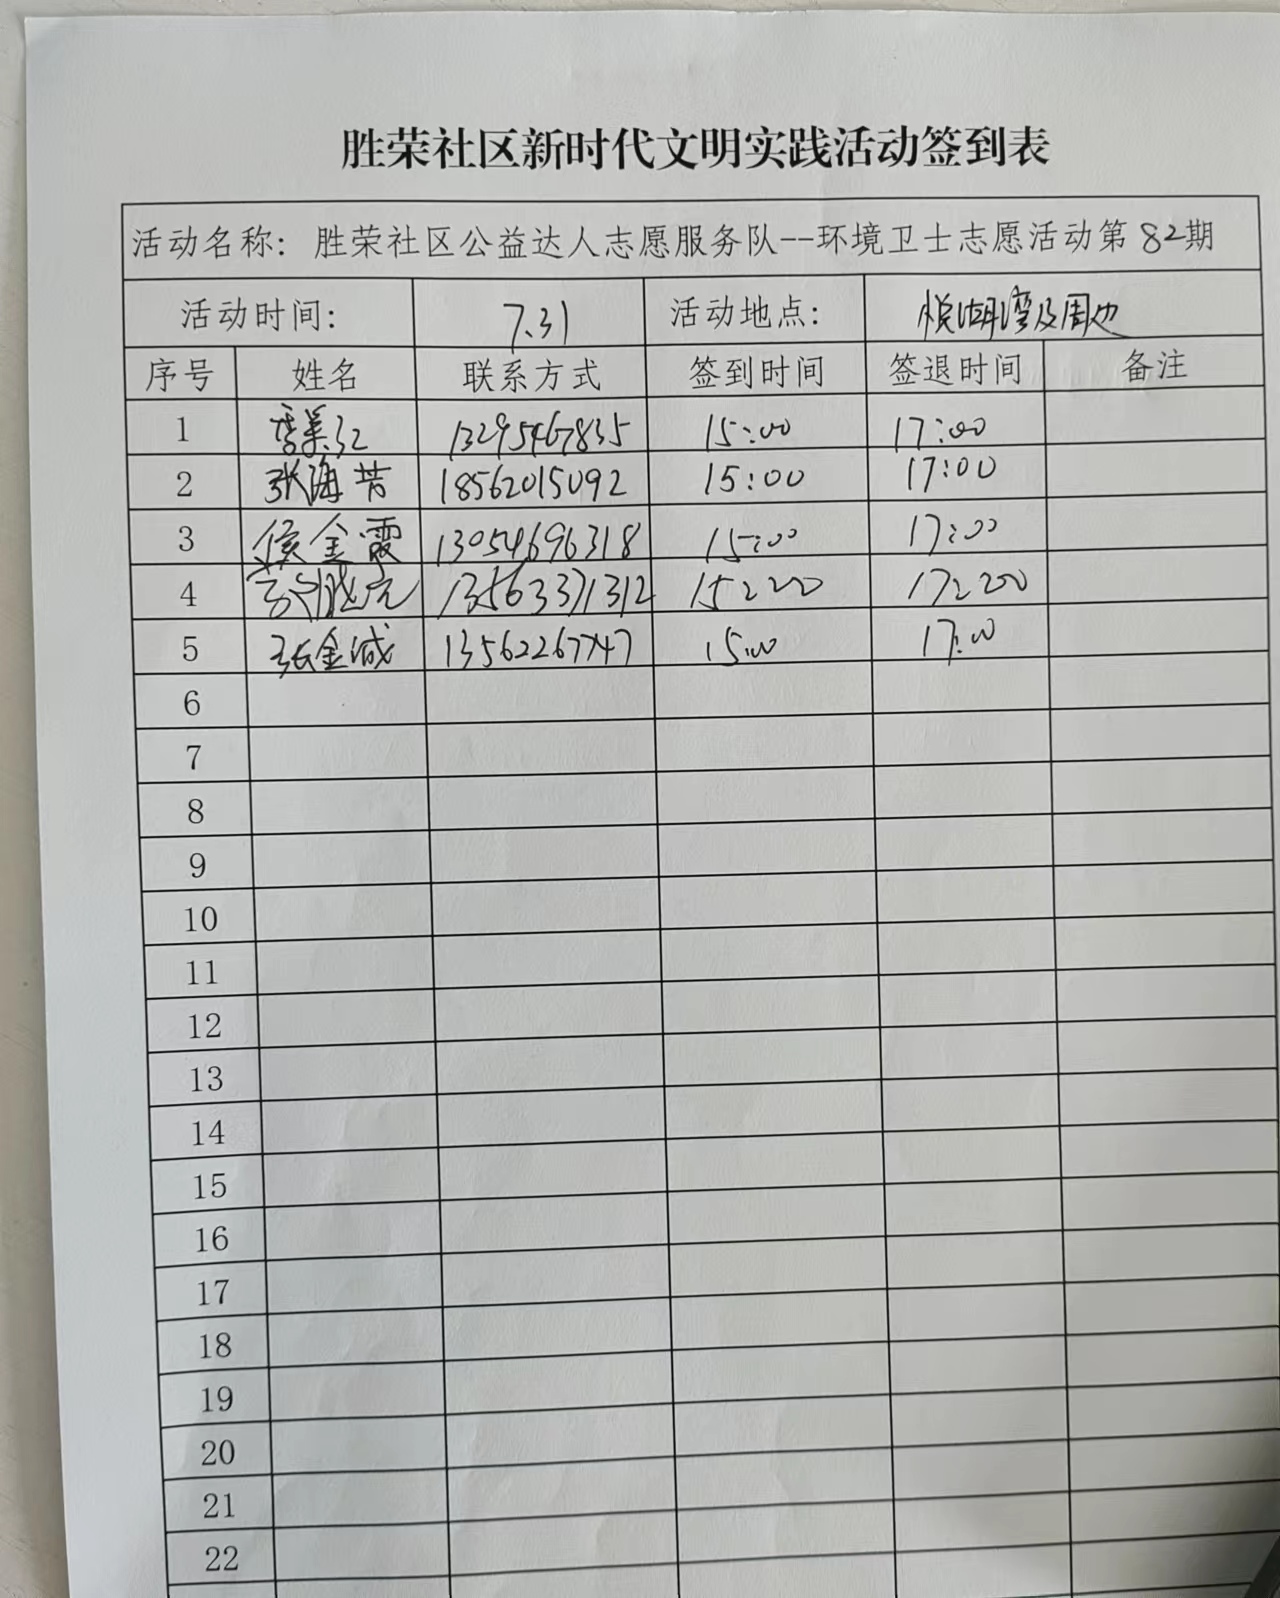 胜荣社区新时代文明实践活动签到表
活动名称：胜荣社区公益达人志愿服务队--环境卫士志愿活动第82期
活动时间： 7.31 活动地点： 悦湖湾及周边
序号 姓名 联系方式 签到时间 签退时间 备注
1 李美江 13295467835 15:00 17:00
2 张海苦 18562015092 15:00 17:00
3 侯金霞 13054696318 15:00 17:00
4 13563371312 15:00 17:00
5 张金诚 13562267747 15:00 17:00
6
7
8
9
10
11
12
13
14
15
16
17
18
19
20
21
22